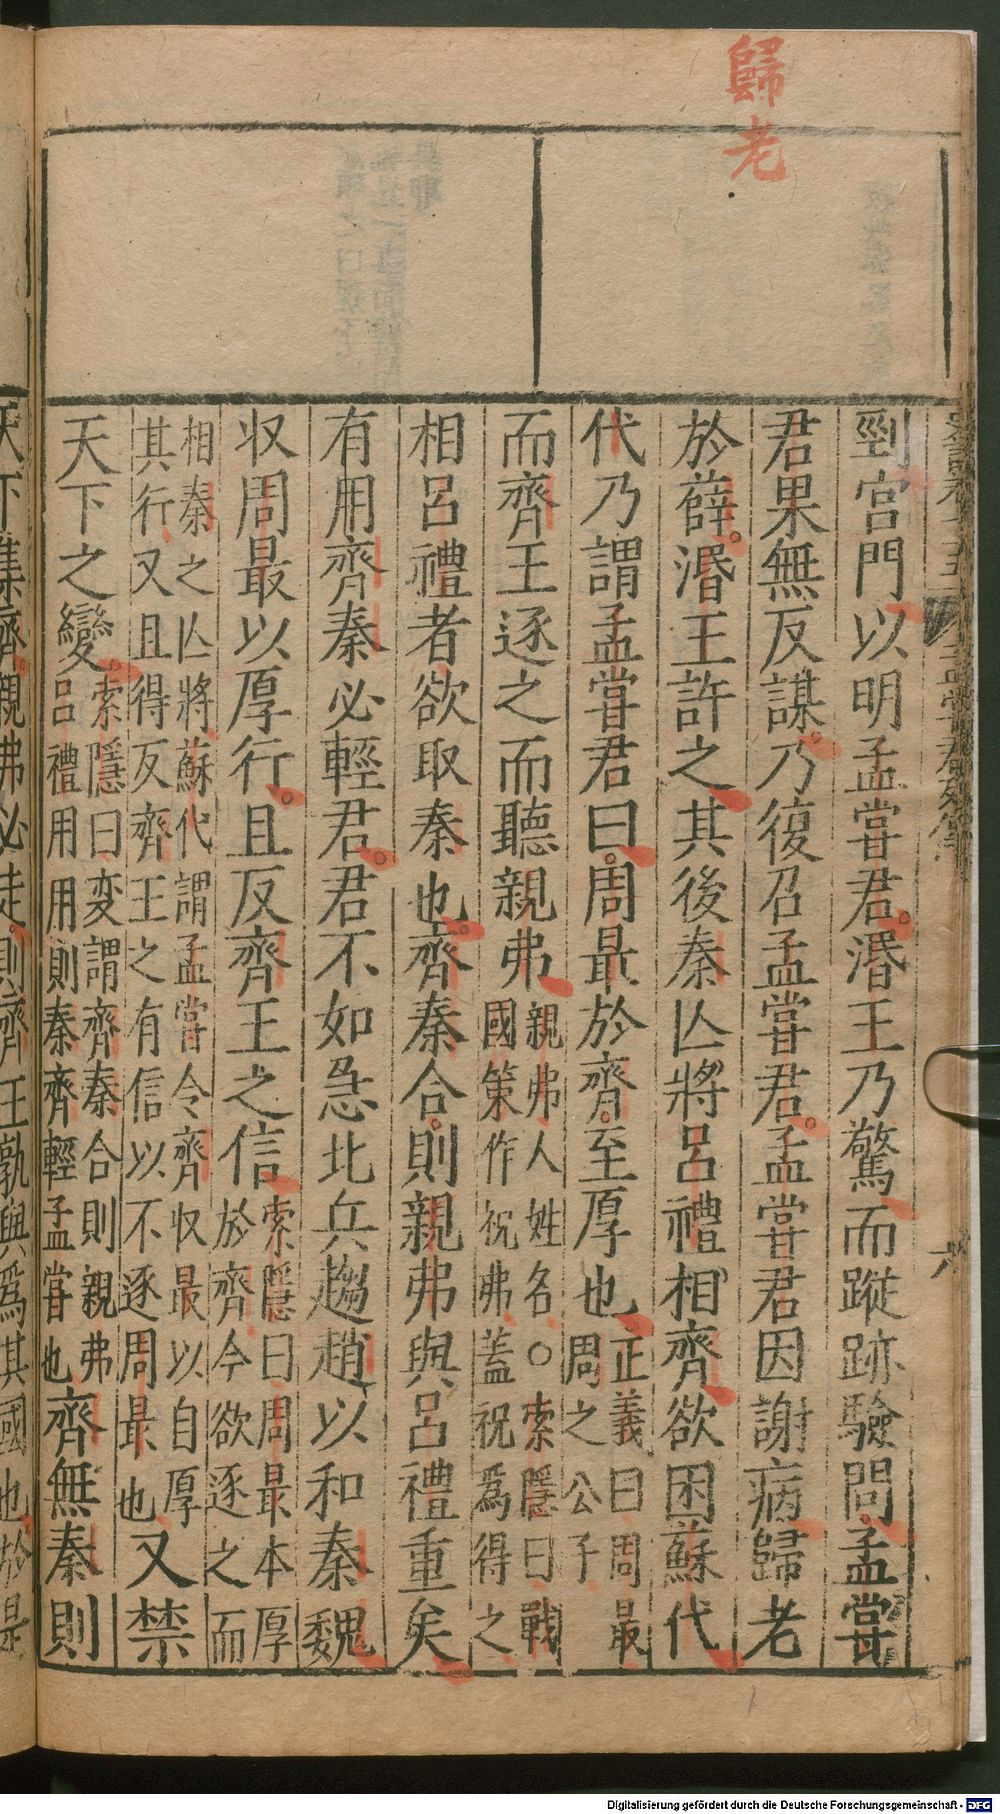 歸老
孟嘗君列傳
六
剄宮門以明孟嘗君。湣王乃驚而蹤跡驗問孟嘗
君果無反謀。乃復召孟嘗君。孟嘗君因謝病歸老
於薛。湣王許之其後秦亾將呂禮相齊欲困蘇代
代乃謂孟嘗君曰。周最於齊。至厚也正義曰周最周之公子
而齊王逐之而聽親弗親弗人姓名○索隱曰戰國策作祝弗蓋祝爲得之
相呂禮者欲取秦也。齊秦合。則親弗與呂禮重矣
有用齊秦必輕君。君不如急北兵趨趙以和秦魏
収周最以厚行。且反齊王之信索隱曰周最本厚於齊今欲逐之而
相秦之亾將蘇代謂孟嘗令齊収最以自厚其行又且得反齊王之有信以不逐周最也又禁
天下之變。索隱曰変謂齊秦合則親弗呂禮用用則秦齊輕孟嘗也齊無秦則
天下集齊親弗必走。則齊王孰與爲其國也於是
Digitalisierung gefördert durch die Deutsche Forschungsgemeinschaft - DFG